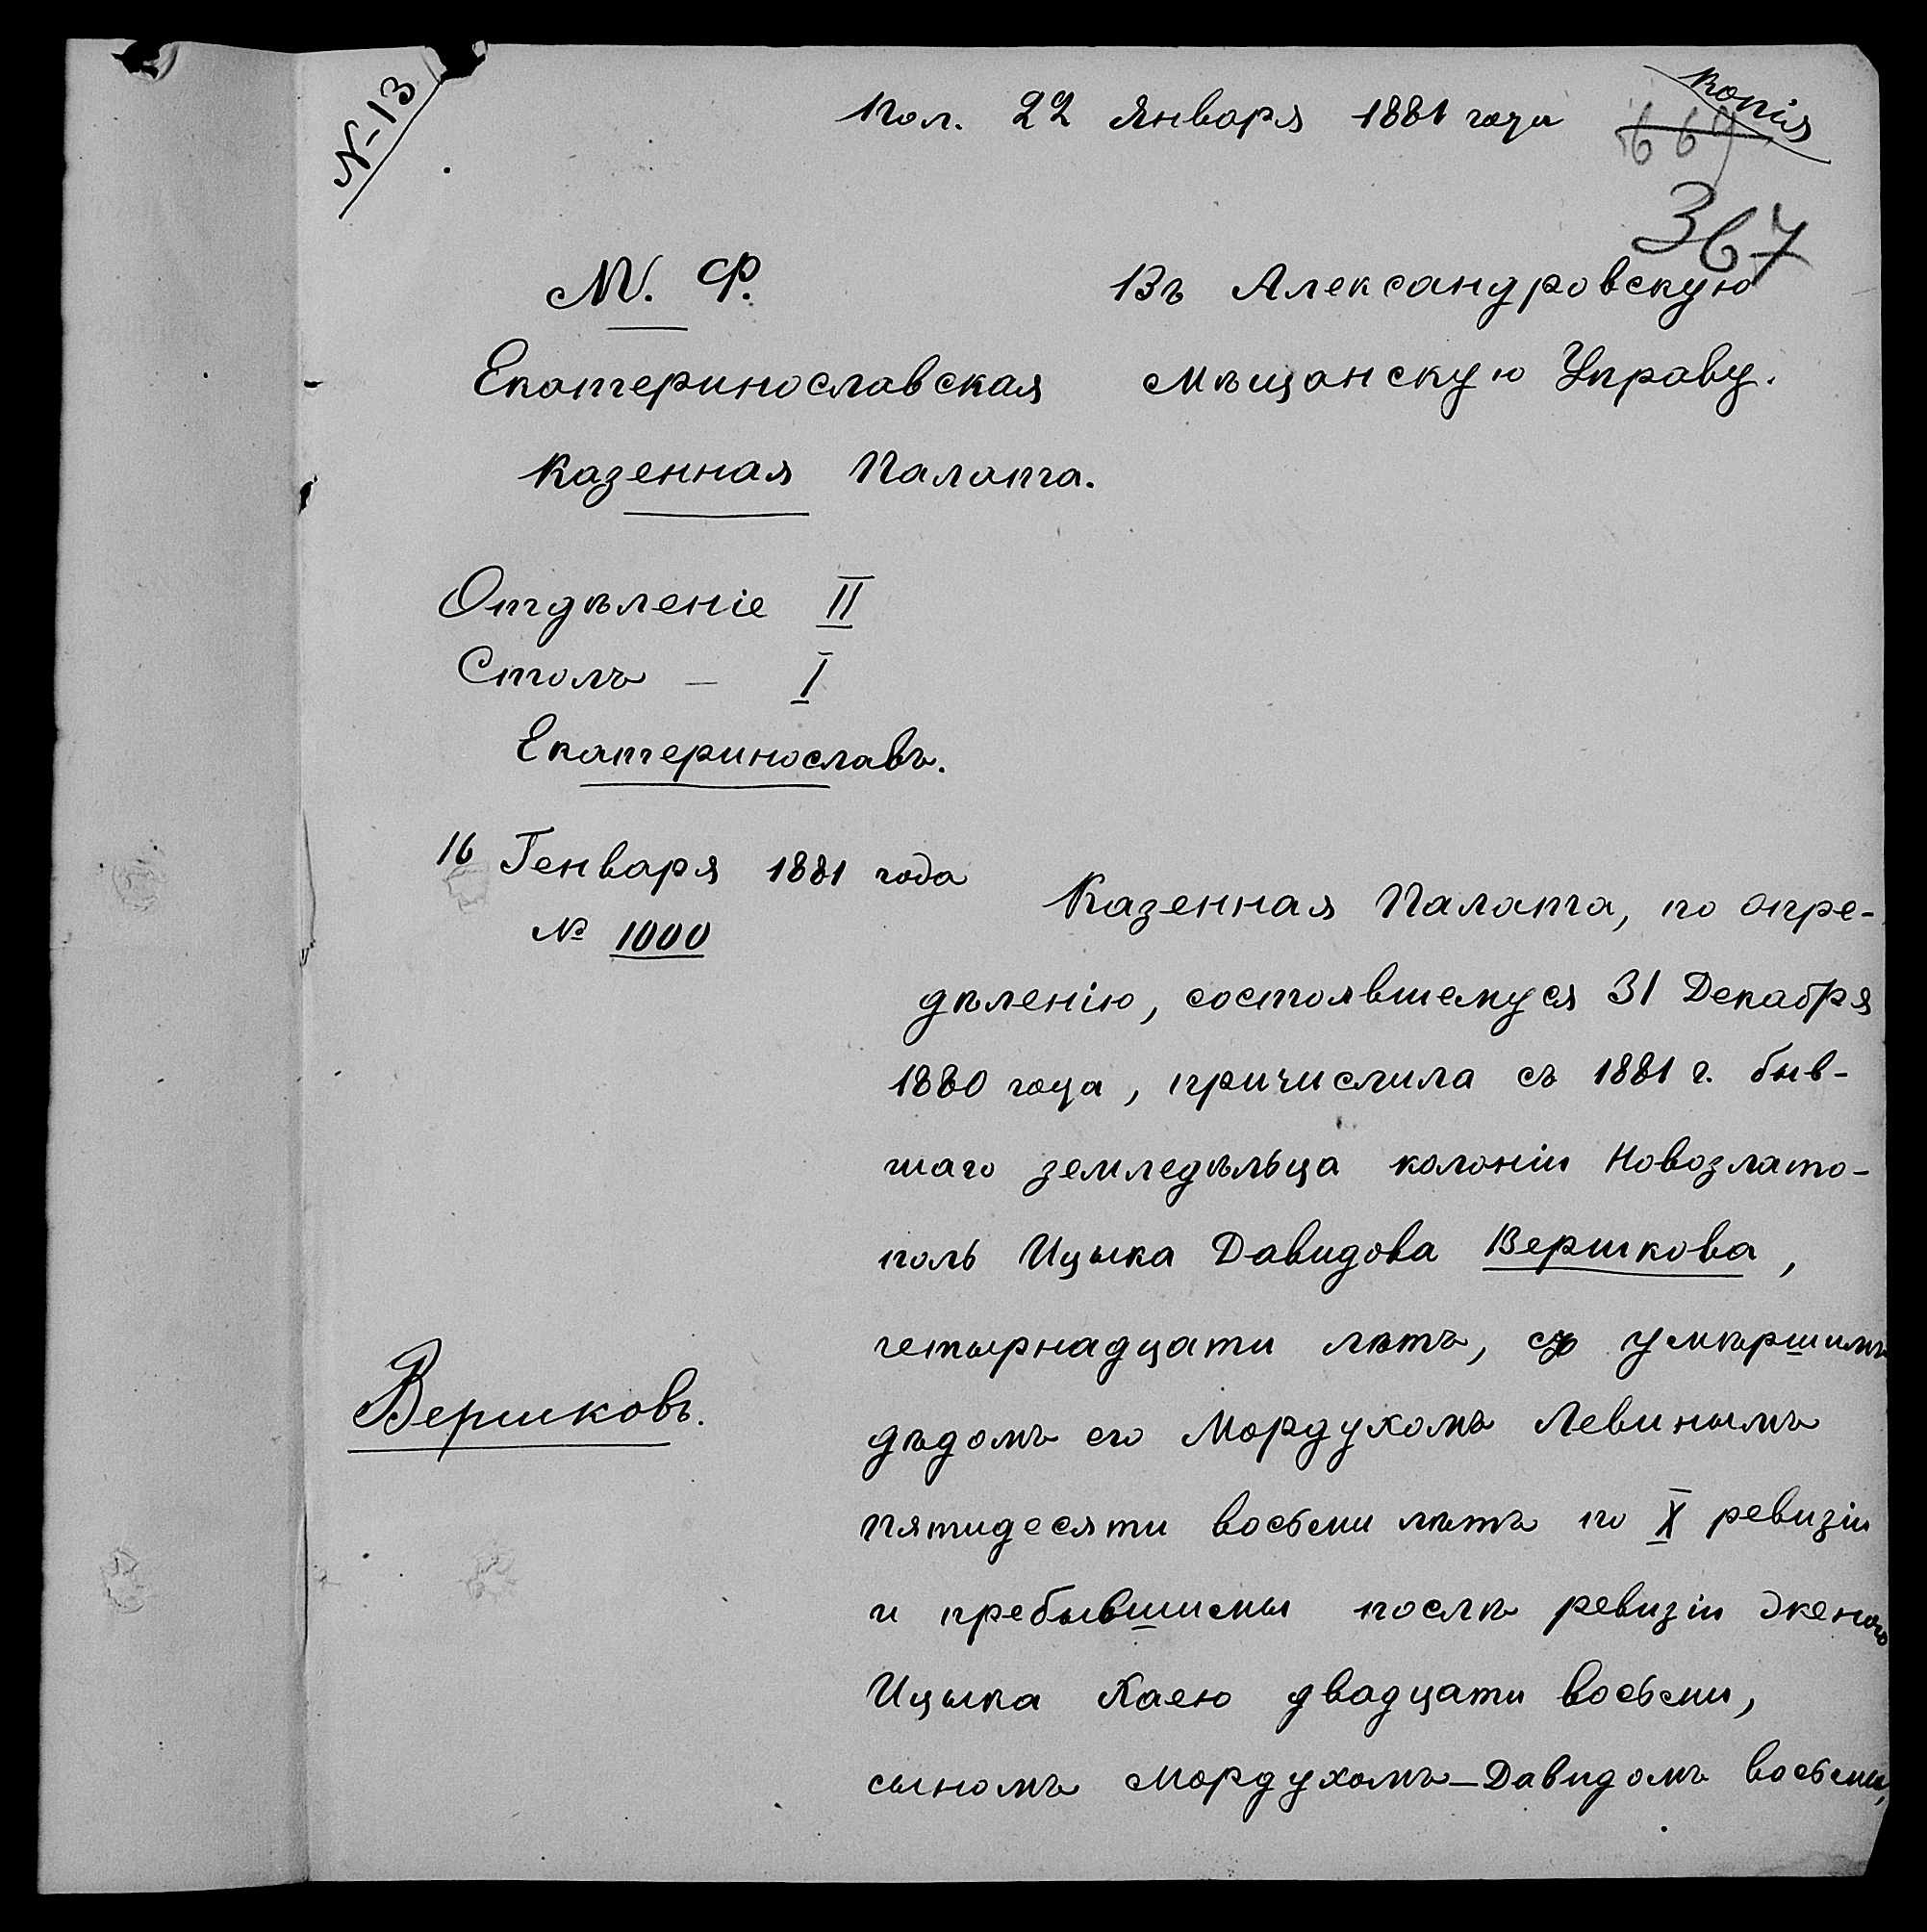 N-13
Пол. 22 Января 1881 года
Копія
669
367
М. Ф.
Екатеринославская
Казенная Палата.
Отдѣленіе II
Столъ – I
Екатеринославъ.
16 Генваря 1881 года
№ 1000
Въ Александровскую
мѣщанскую Управу.
Казенная Палата, по опре-
дѣленію, состоявшемуся 31 Декабря
1880 года, причислила съ 1881 г. быв-
шаго земледѣльца колоніи Новозлато-
поль Ицыка Давидова Вершкова,
четырнадцати лѣтъ, съ умѣршимъ
дѣдомъ его Мордухомъ Левинымъ
пятидесяти восьми лѣтъ по X ревизіи
и пребывшимы послѣ ревизіи женою
Ицыка Хаею двадцати восьми,
сыномъ Мордухомъ-Давидомъ восьми,
Вершковъ.